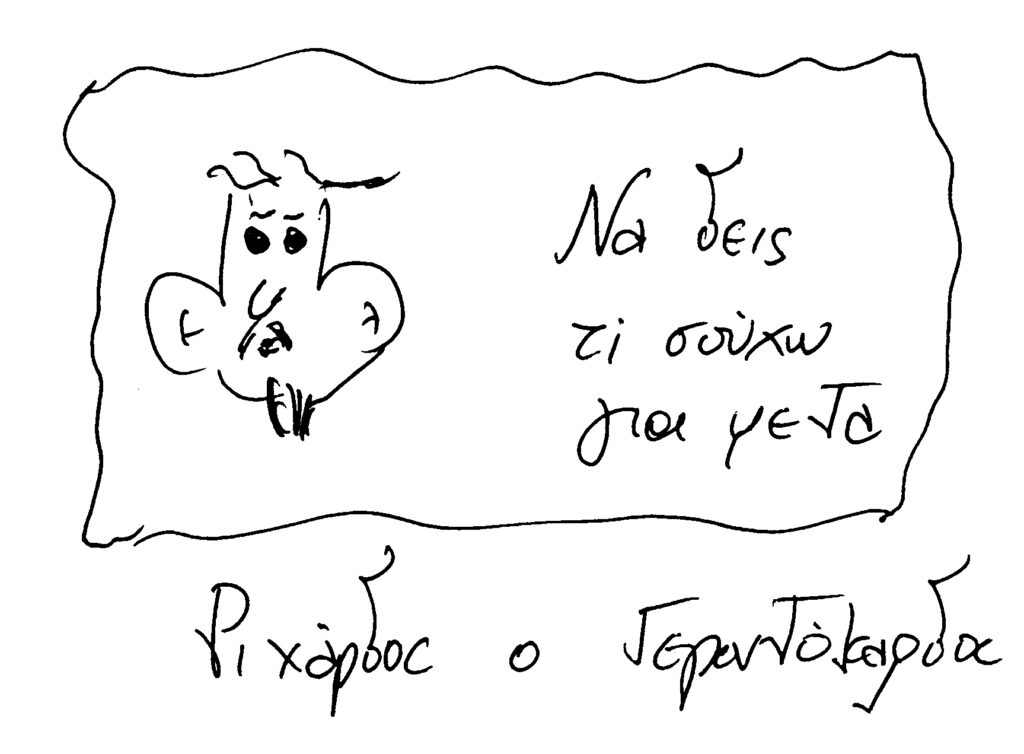 Να δεις
τί σούχω
για μετα
Ριχάρδος ο Γεροντόκαρδος